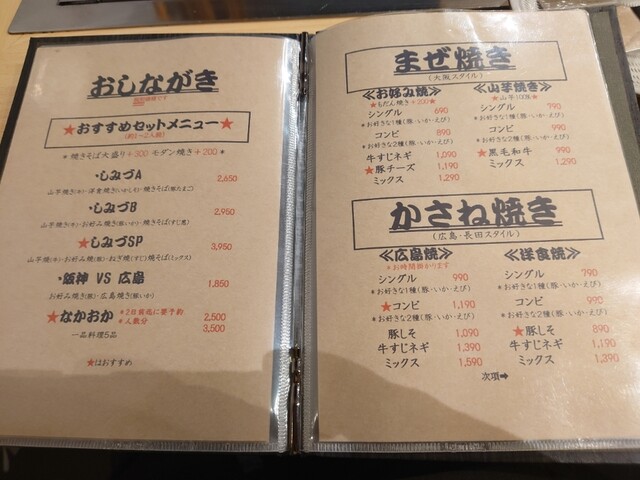 おしながき
★おすすめセットメニュー★
(約1~2人前)
*焼きそば大盛り+300 モダン焼き+200*
・しみづA 2,650
・しみづB 2,950
★しみづSP 3,950
・阪神 VS 広島 1,850
お好み焼(豚)・広島焼き(豚いか)
★なかおか *2日前迄に要予約 2,500
*人数分 3,500
一品料理5品
★はおすすめ
まぜ焼き
(大阪スタイル)
≪お好み焼≫
★もだん焼き+200★
シングル 690
*お好きな1種(豚・いか・えび)
コンビ 890
*お好きな2種(豚・いか・えび)
牛すじネギ 1,090
★豚チーズ 1,190
ミックス 1,290
≪山芋焼き≫
★山芋100%★
シングル 790
*お好きな1種(豚・いか・えび)
コンビ 990
*お好きな2種(豚・いか・えび)
★黒毛和牛 990
ミックス 1,290
かさね焼き
(広島・長田スタイル)
≪広島焼≫
*お時間掛かります
シングル 990
*お好きな1種(豚・いか・えび)
★コンビ 1,190
*お好きな2種(豚・いか・えび)
豚しそ 1,090
牛すじネギ 1,390
ミックス 1,590
≪洋食焼≫
シングル 790
*お好きな1種(豚・いか・えび)
コンビ 990
*お好きな2種(豚・いか・えび)
★豚しそ 890
牛すじネギ 1,190
ミックス 1,390
次項➡